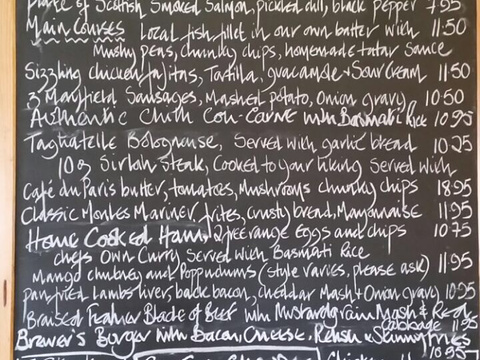 Plate of Scottish Smoked Salmon, pickled dill, black pepper 7.95
Main Courses Local fish fillet in our own batter with 11.50
Mushy peas, chunky chips, homemade tatar sauce
Sizzling chicken fajitas, Tortilla, guacamole + Sour Cream 11.50
3 Mayfield Sausages, Mashed potato, Onion gravy 10.50
Authentic Chilli Con-Carne with Basmati Rice 10.95
Tagliatelle Bolognaise, Served with garlic bread 10.25
10oz Sirloin Steak, Cooked to your liking Served with
Café du Paris butter, tomatoes, Mushrooms chunky chips 18.95
Classic Moules Mariner, frites, crusty bread, Mayonnaise 11.95
Home Cooked Ham, 2 free range Eggs and chips 10.75
chefs Own Curry Served With Basmati Rice
Mango chutney and Poppudums (style varies, please ask) 11.95
panfried Lambs liver, back bacon, cheddar Mash + Onion gravy 10.95
Braised Feather Blade of Beef with Mustard grain Mash + Red
Cabbage 11.95
Brewer's Burger with Bacon, Cheese, Relish + Skinny fries
10.95